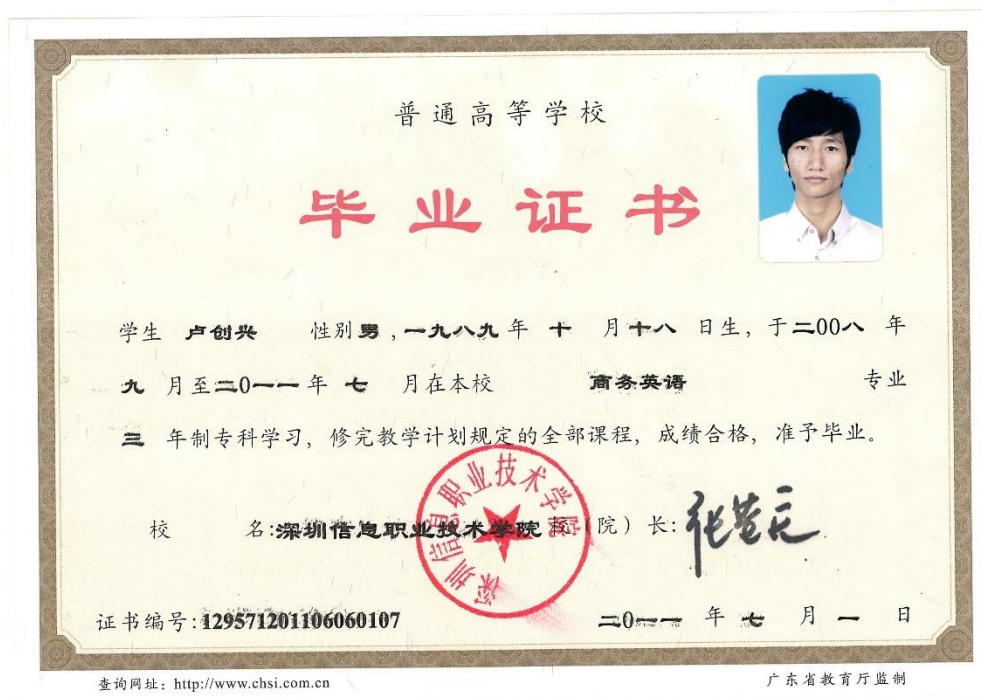 普通高等学校
毕业证书
学生 卢创兴 性别 男，一九八九年 十 月 十八 日生，于二00八 年
九 月至二0一一年 七 月在本校 商务英语 专业
三 年制专科学习，修完教学计划规定的全部课程，成绩合格，准予毕业。
深圳信息职业技术学院
校 名：深圳信息职业技术学院 校（院）长：
证书编号：129571201106060107 二0一一 年 七 月 一 日
查询网址：http://www.chsi.com.cn 广东省教育厅监制